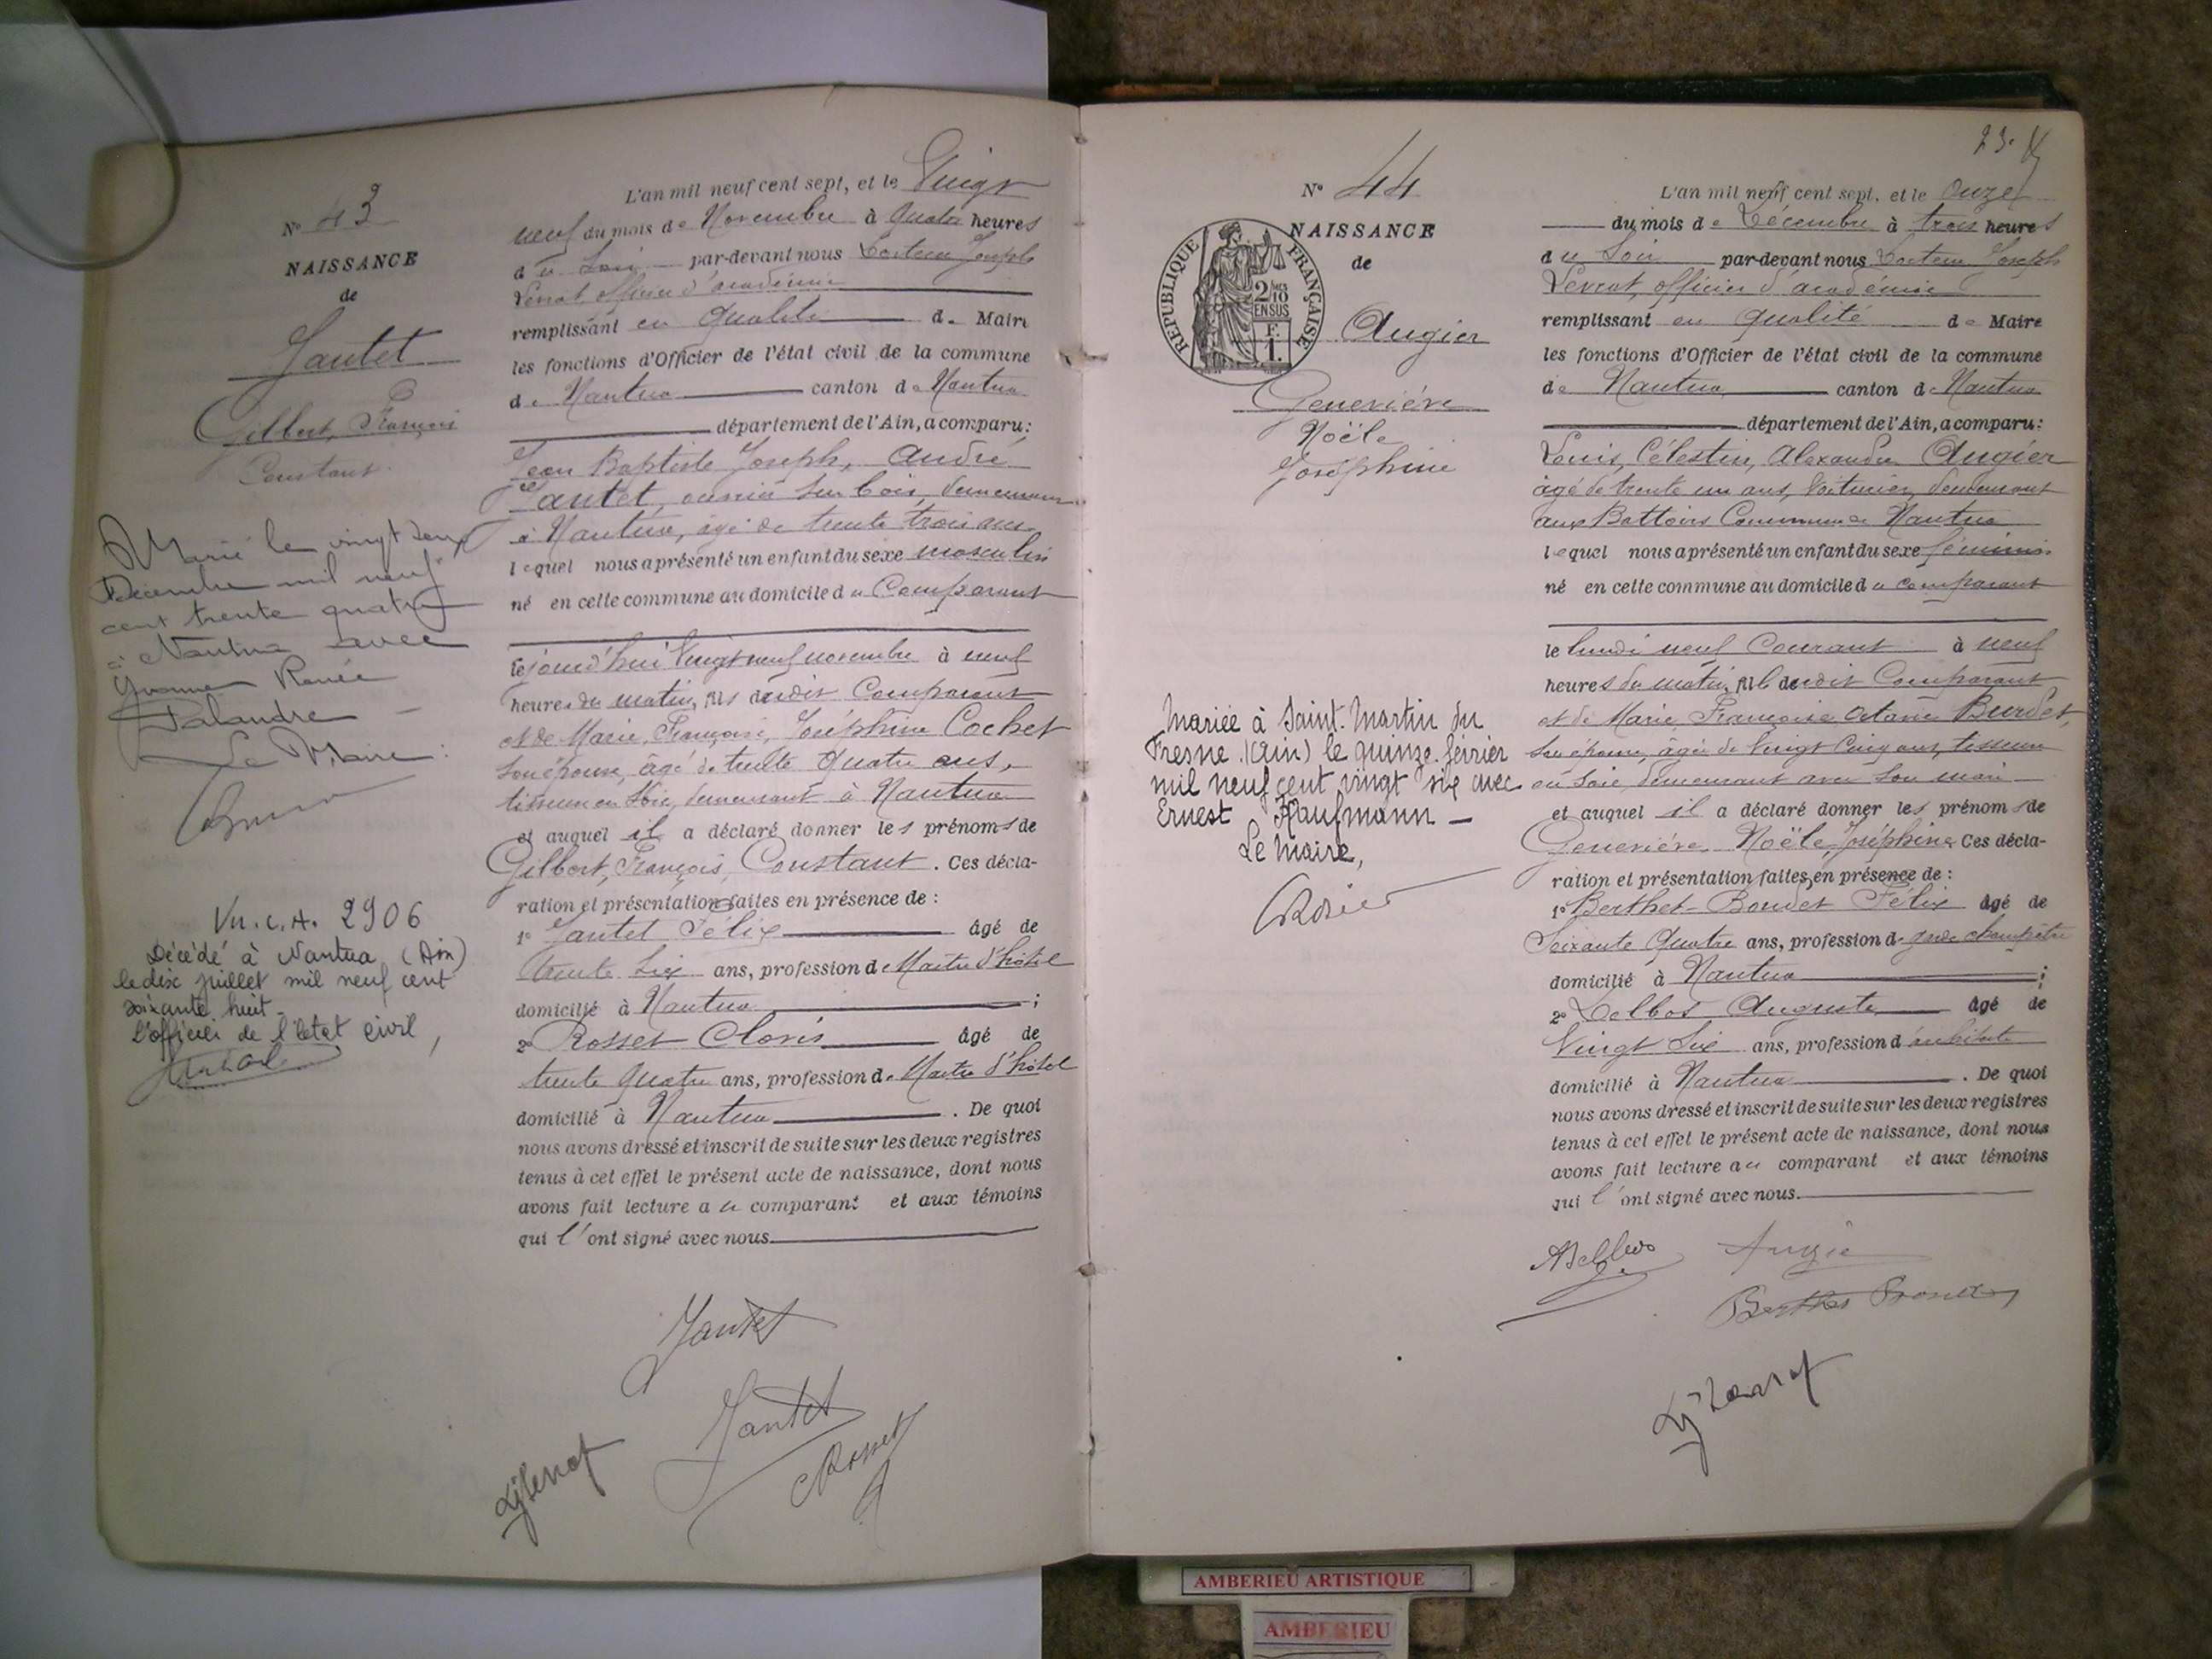 N° 43
NAISSANCE
de
Jantet
Gilbert, François
Constant
Marié le vingt deux
Décembre mil neuf
cent trente quatre
à Nantua avec
Yvonne Renée
Palandre —
Le Maire :
Vu. C. A. 2906
Décédé à Nantua (Ain)
le dix juillet mil neuf cent
soixante huit -
L'officier de l'état civil,
L'an mil neuf cent sept, et le Vingt
neuf du mois de Novembre à quatre heures
du Soir par-devant nous Docteur Joseph
Levrat officier d'académie
remplissant en qualité de Maire
les fonctions d'Officier de l'état civil de la commune
de Nantua canton de Nantua
département de l'Ain, a comparu :
Jean Baptiste Joseph, André
Jantet, ouvrier sur bois, demeurant
à Nantua, âgé de trente trois ans
lequel nous a présenté un enfant du sexe masculin
né en cette commune au domicile du Comparant
le jourd'hui vingt neuf novembre à neuf
heures du matin, fils dudit Comparant
et de Marie, Françoise, Joséphine Cochet
son épouse, âgé de trente quatre ans,
tisseuse en soie, demeurant à Nantua
et auquel il a déclaré donner les prénoms de
Gilbert, François, Constant. Ces décla-
ration et présentation faites en présence de :
1° Jantet Félix âgé de
trente six ans, profession de Maitre d'hôtel
domicilié à Nantua ;
2° Rosset Clovis âgé de
trente quatre ans, profession de Maitre d'hôtel
domicilié à Nantua. De quoi
nous avons dressé et inscrit de suite sur les deux registres
tenus à cet effet le présent acte de naissance, dont nous
avons fait lecture au comparant et aux témoins
qui l'ont signé avec nous.
Jantet
Jantet
Rosset
Lj Levrat
23.
N° 44
NAISSANCE
de
RÉPUBLIQUE FRANÇAISE
2/10 EN SUS
F. 1.
Augier
Geneviève
Noële
Joséphine
Mariée à Saint-Martin du
Fresne (Ain) le quinze février
mil neuf cent vingt six avec
Ernest Kaufmann —
Le Maire,
L'an mil neuf cent sept, et le Onze
du mois de Décembre à trois heures
du Soir par-devant nous Docteur Joseph
Levrat, officier d'académie
remplissant en qualité de Maire
les fonctions d'Officier de l'état civil de la commune
de Nantua canton de Nantua
département de l'Ain, a comparu :
Louis, Célestin, Alexandre Augier
âgé de trente un ans, Voiturier, demeurant
aux Battoirs Commune de Nantua
lequel nous a présenté un enfant du sexe féminin
né en cette commune au domicile du comparant
le lundi neuf Courant à neuf
heures du matin, fille dudit Comparant
et de Marie Françoise Octavie Burdet,
son épouse, âgée de vingt cinq ans, tisseuse
en soie, demeurant avec son mari
et auquel il a déclaré donner les prénoms de
Geneviève Noële, Joséphine. Ces décla-
ration et présentation faites en présence de :
1° Berthet-Bondet Félix âgé de
Soixante quatre ans, profession de garde champêtre
domicilié à Nantua ;
2° Delbos Auguste âgé de
Vingt Six ans, profession d'architecte
domicilié à Nantua. De quoi
nous avons dressé et inscrit de suite sur les deux registres
tenus à cet effet le présent acte de naissance, dont nous
avons fait lecture au comparant et aux témoins
qui l'ont signé avec nous.
ADelbos Augié
Berthet Bondet
Lj Levrat
AMBERIEU ARTISTIQUE
AMBERIEU